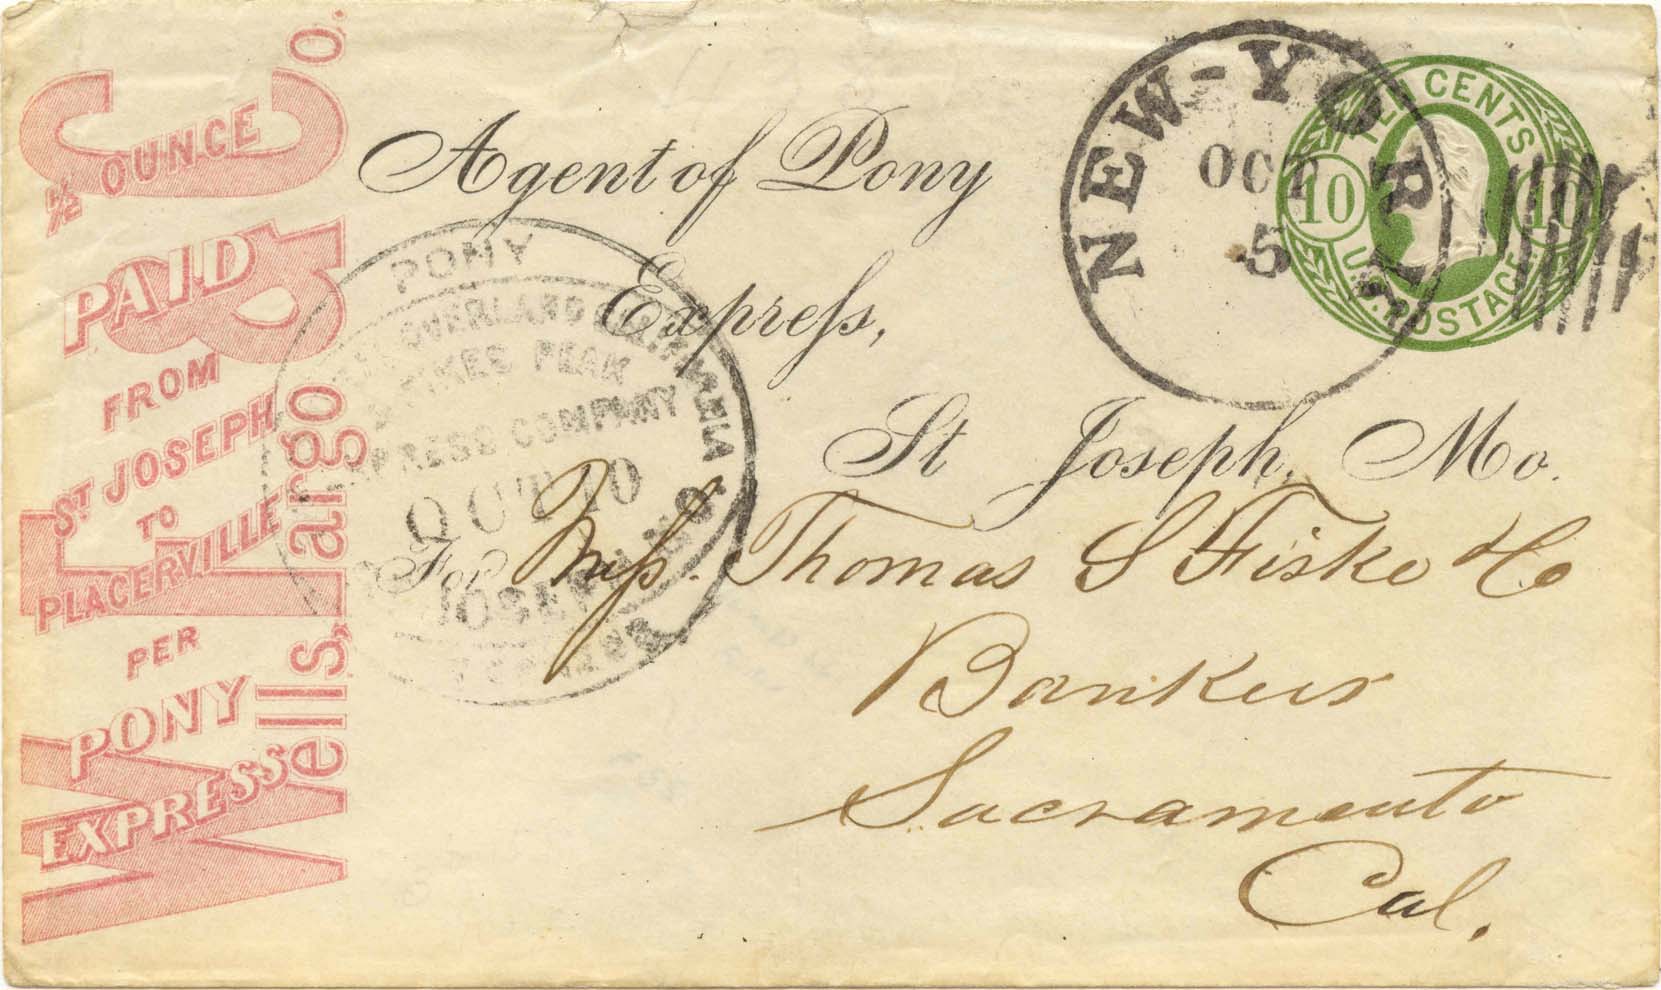 W. F. & Co.
Wells, Fargo
½ OUNCE
PAID
FROM
ST JOSEPH
TO
PLACERVILLE
PER
PONY
EXPRESS
Agent of Pony
Express,
St Joseph, Mo.
For Mess. Thomas S Fiske & Co
Bankers
Sacramento
Cal.
NEW-YORK
OCT
5
TEN CENTS
10 10
U.S. POSTAGE
PONY
OVERLAND CALIFORNIA
PIKES PEAK
EXPRESS COMPANY
OCT 10
ST JOSEPH
EXPRESS